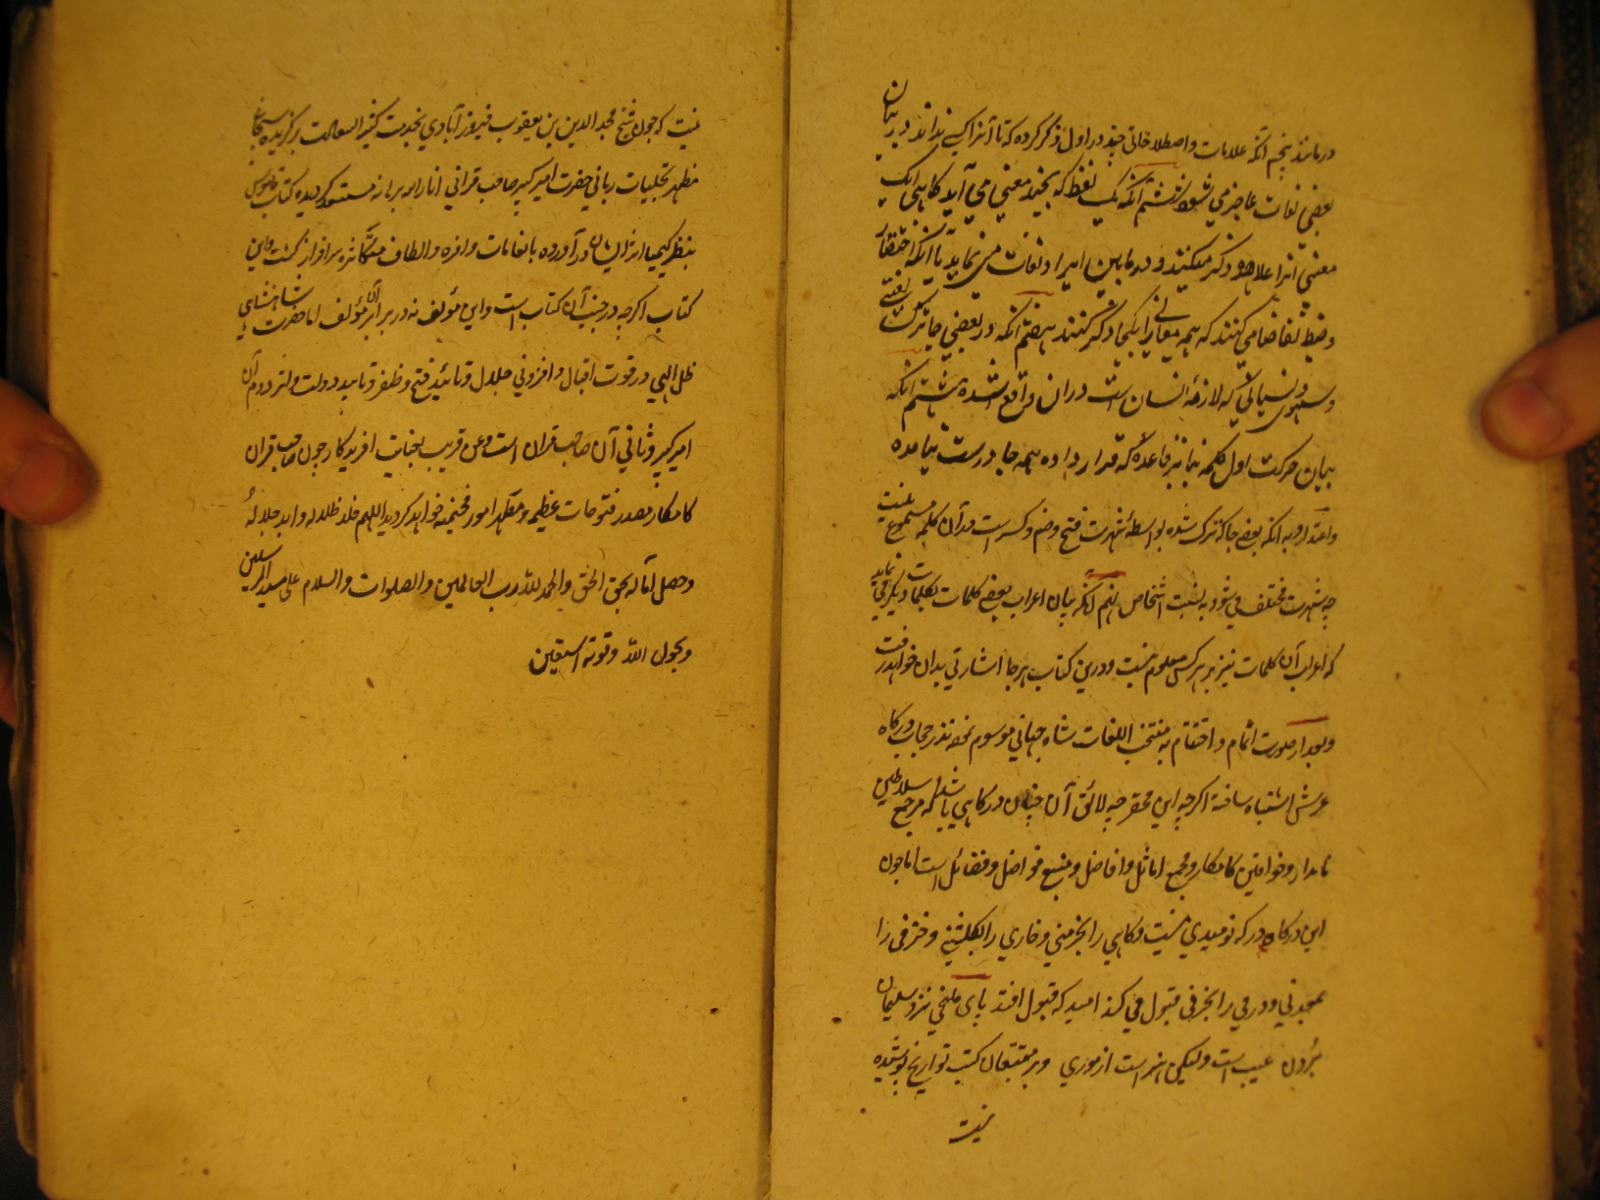 درمانند پنجم آنکه علامات و اصطلاحاتی چند در اول ذکر کرده که تا آنرا کسی نداند در بیان
بعضی لغات عاجز می شود ششم آنکه یک لفظ که بچند معنی می آید کاهی یک
معنی انرا علاحده ذکر میکنند و در مابین ایراد لغات می نماید با آنکه اختصار
و ضبط تقاضا می کنند که همه معانی را یکجا ذکر کنند هفتم آنکه در بعضی جا ترک لغتی
و سهوی و نسیانی که لازمهٔ انسان است دران واقع شده هشتم آنکه
بیان حرکت اول کلمه بنابر قاعدهٔ که قرار داده همه جا درست نیامده
و اعتذار او به انکه بعضی جا که ترک شده بواسطهٔ شهرت فتح و ضم و کسر است در آن کلمه مسموع نیست
چه شهرت مختلف می شود به نسبت اشخاص نهم آنکه بیان اعراب بعضی کلمات بکلمات دیگر می نماید
که اعراب آن کلمات نیز بر هر کس معلوم نیست و درین کتاب هر جا اشارتی بدان خواهد رفت
و بعد از صورت اتمام و اختتام به منتخب اللغات شاه جهانی موسوم تحفه نذر حجاب درکاه
عرش اشتباه ساخته اکرچه این محقر چه لائق آن چنان درکاهی باشد که مرجع سلاطین
نامدار و خواقین کامکار و مجمع اماثل و افاضل و منبع فواضل و فضائل است اما چون
این درکاه درکه نومیدی نیست و کاهی را بخرمنی و خاری را بکلشنی و خزفی را
بمعدنی و درمی را بخزفی قبول می کند امید که قبول افتد پای ملخی نزد سلیمان
بردن عیب است ولیکن هنر است از موری و بر متتبعان کتب تواریخ پوشیده
نیست
نیست که چون شیخ مجد الدین بن یعقوب فیروزآبادی بخدمت کثیر السعادت برکزیدهٔ سبحانی
مظهر تجلیات ربانی حضرت امیر کبیر صاحب قرانی انار الله برهانه مستسعد کردیده کتاب قاموس
بنظر کیمیا اثر ایشان در آورده بانعامات وافره و الطاف متکاثره سرافراز کشت و این
کتاب اکرچه در جنب آن کتاب است و این مؤلف نه در برابر آن مؤلف اما حضرت شاهنشاهی
ظل الهی در قوت اقبال و افزونی جلال و تائید فتح و ظفر و تایید دولت و لتر دوم آن
امیر کبیر و ثانی آن صاحب قران است و عن قریب بعنایت افریدکار چون صاحب قران
کامکار مصدر فتوحات عظیمه و مظهر امور فخیمه خواهد کردید اللهم خلد ظلاله و ابد جلاله
و حصل آماله بحق الحق و الحمد لله رب العالمین و الصلوات و السلام علی سید المرسلین
و بحول الله و قوته استعین